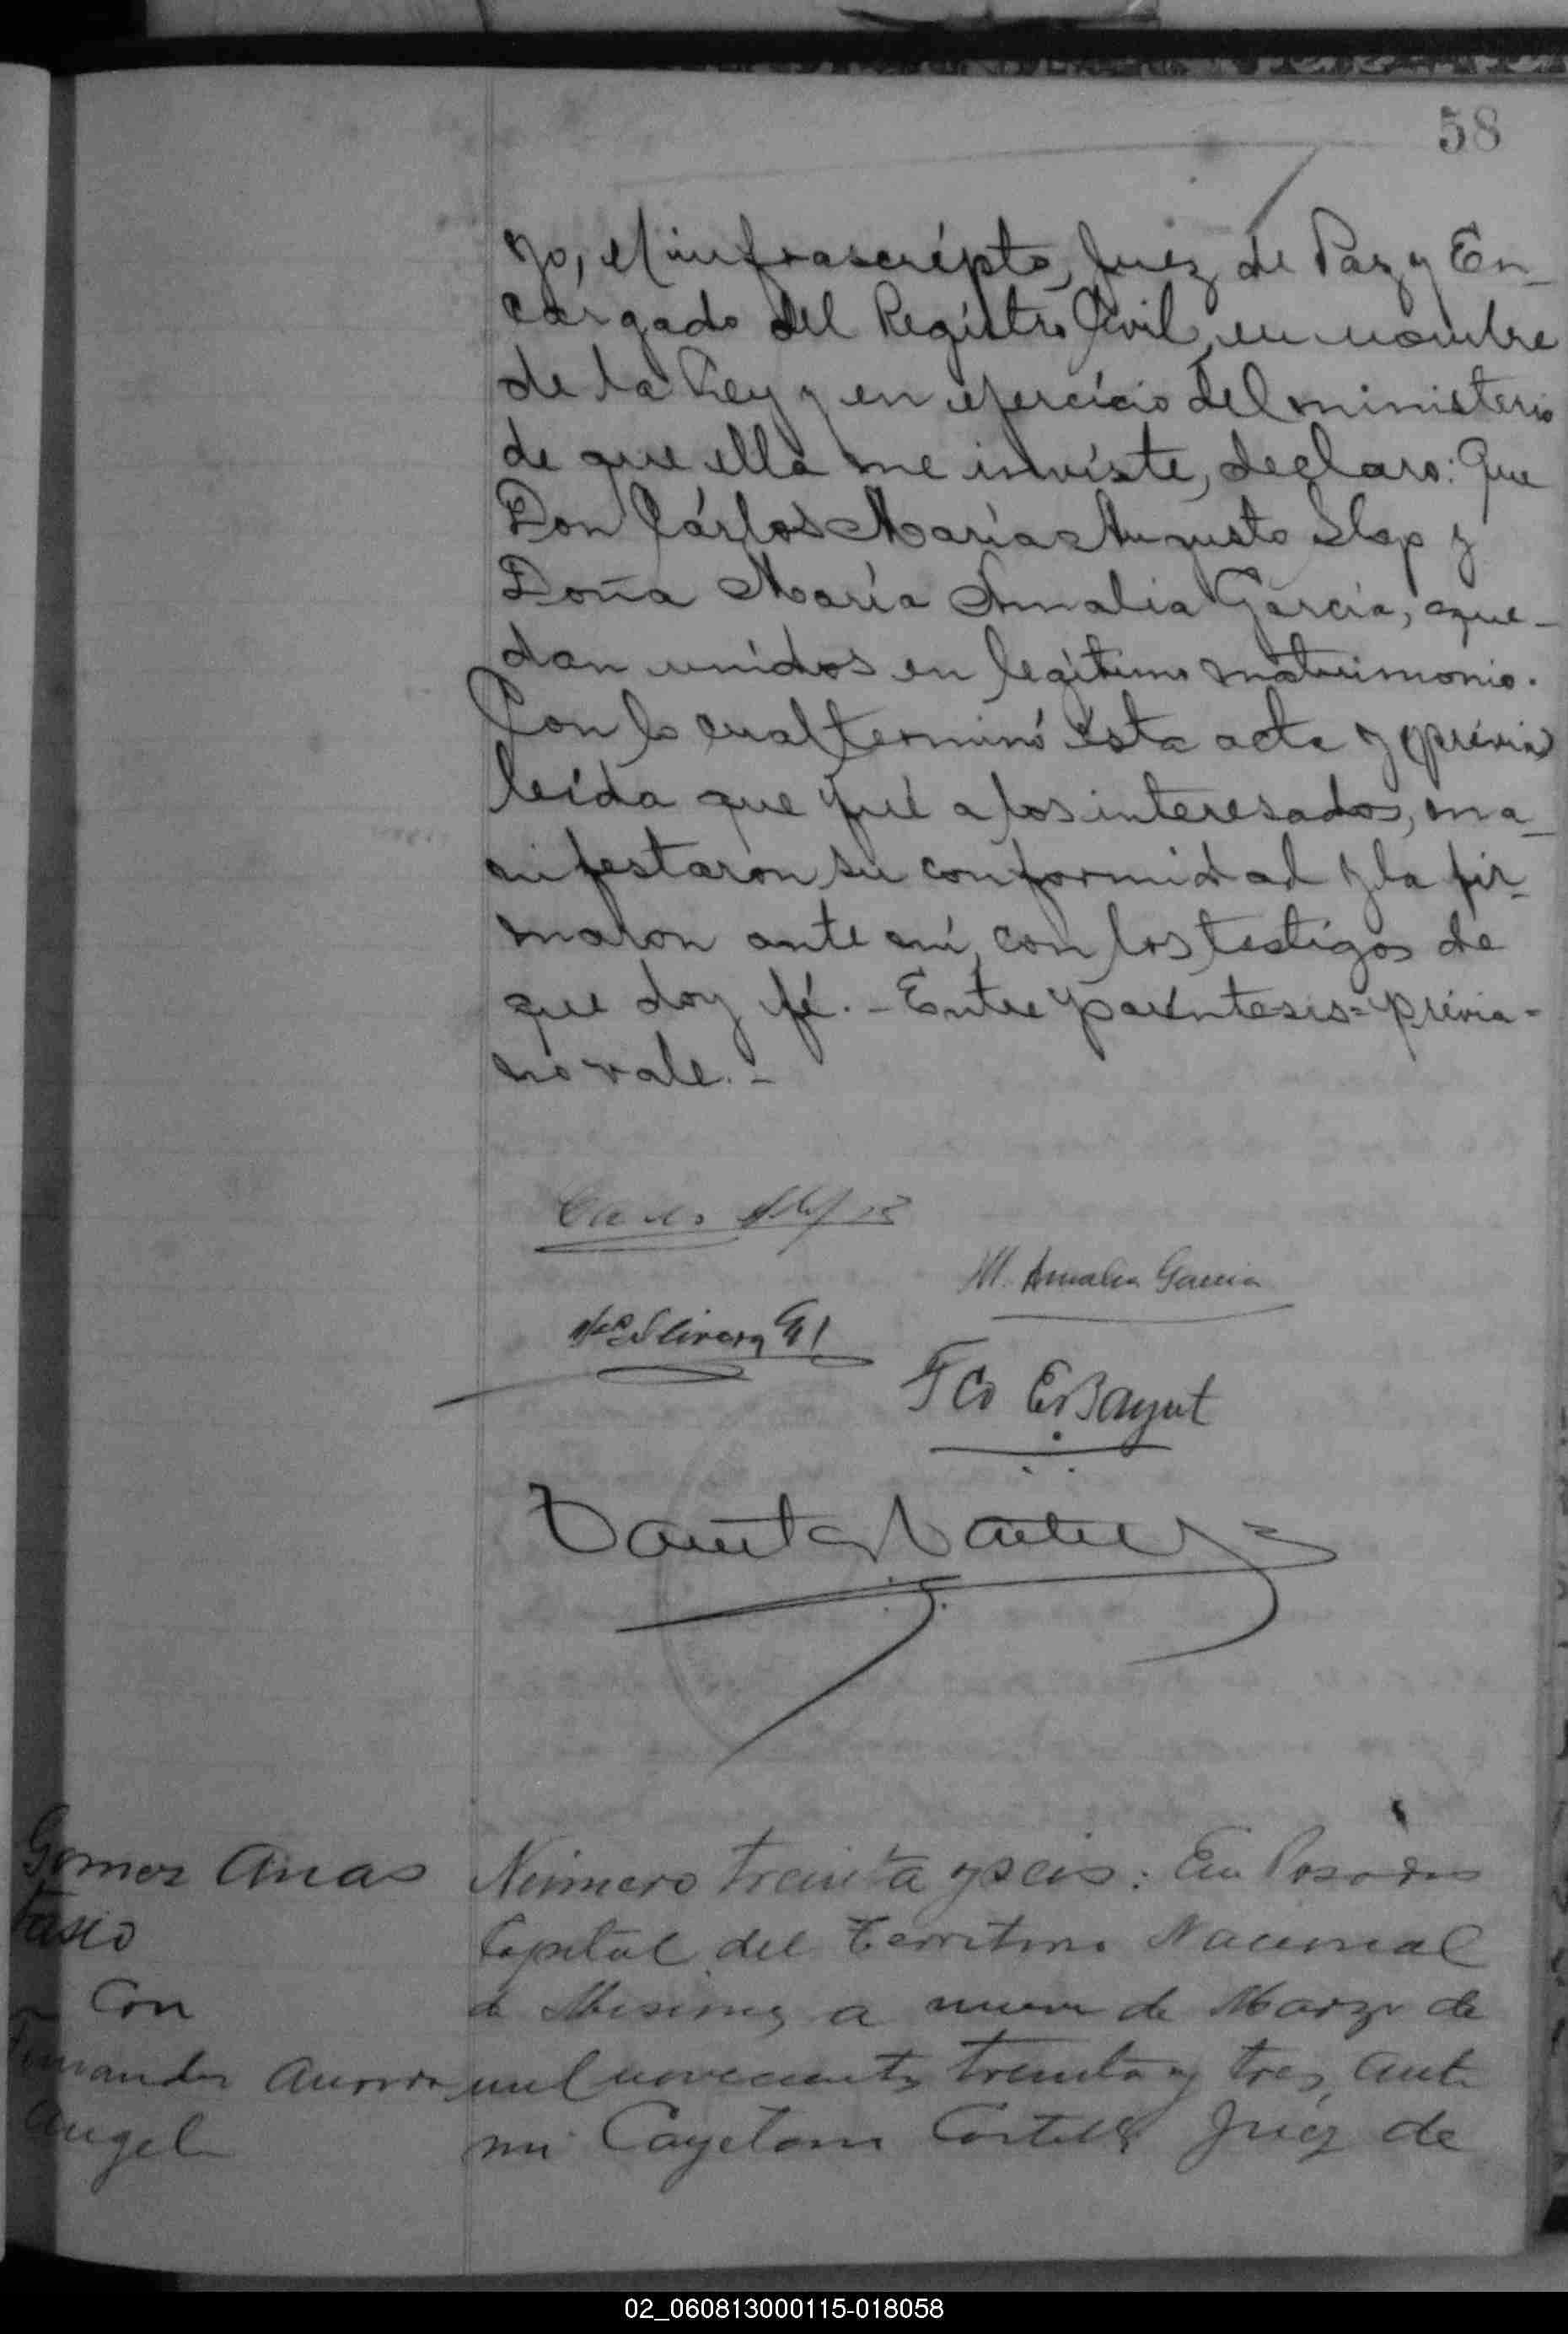 58
Yo, el infrascripto, Juez de Paz y En-
cargado del Registro Civil, en nombre
de la Ley y en ejercicio del ministerio
de que ella me inviste, declaro: Que
Don Cárlos María Augusto Slap y
Doña María Amalia García, que-
dan unidos en legítimo matrimonio.
Con lo cual terminó ésta acta y (prévia)
leída que fué a los interesados, ma-
nifestaron su conformidad y la fir-
maron ante mí, con los testigos de
que doy fé. - Entre paréntesis = prévia =
no vale. -
M. Amalia Garcia
Fco E. Bayut
Gomez Anas
tasio
Con
Fernandez Aurora
Angel
Número treinta y seis: En Posadas
Capital del Territorio Nacional
de Misiones, a nueve de Marzo de
mil novecientos treinta y tres, ante
mi Cayetano Juez de
02_060813000115-018058